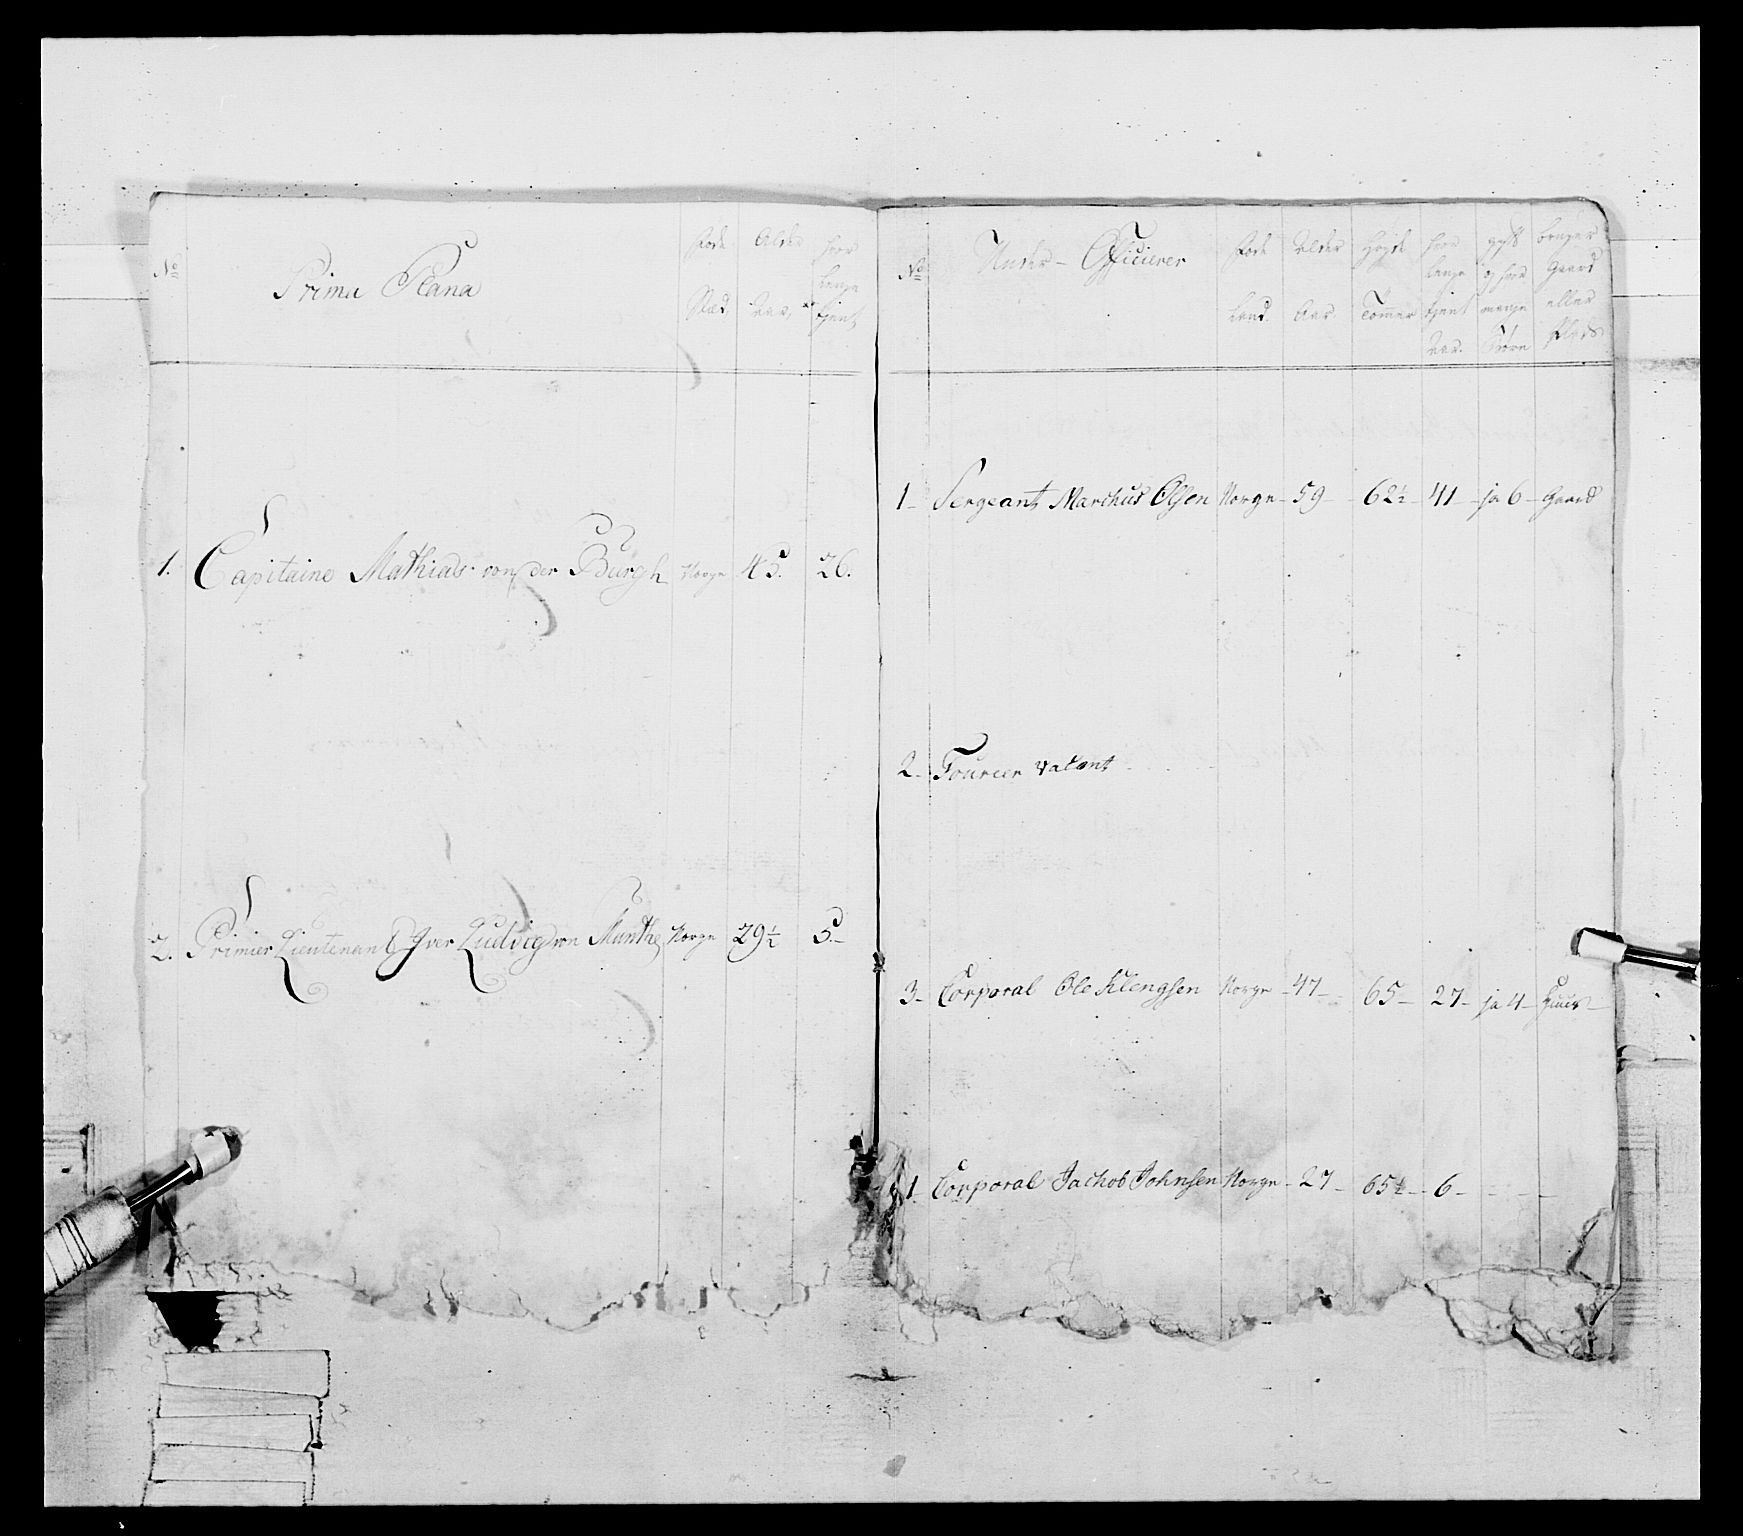 No Prima Plana Føde Sted. Alder Aar. hvor lenge tjent
1. Capitaine Mathias von der Burgh Norge 45. 26.
2. Primier Lieutenant Iver Ludvig von Munthe Norge 29½ 5.-
No Under-Officierer Føde Land. Alder Aar. Høyde Tommer hvor lenge tjent Aar. gift og hvor mange Børn bruger Gaard eller Plads
1- Sergeant Marchus Olsen Norge- 59- 62½- 41- ja 6- Gaard
2- Fourier vacant
3- Corporal Ole Klengsen Norge -47- 65- 27- ja 4- Huus-
1- Corporal Jachob Johnsen Norge- 27- 65½- 6- - - -